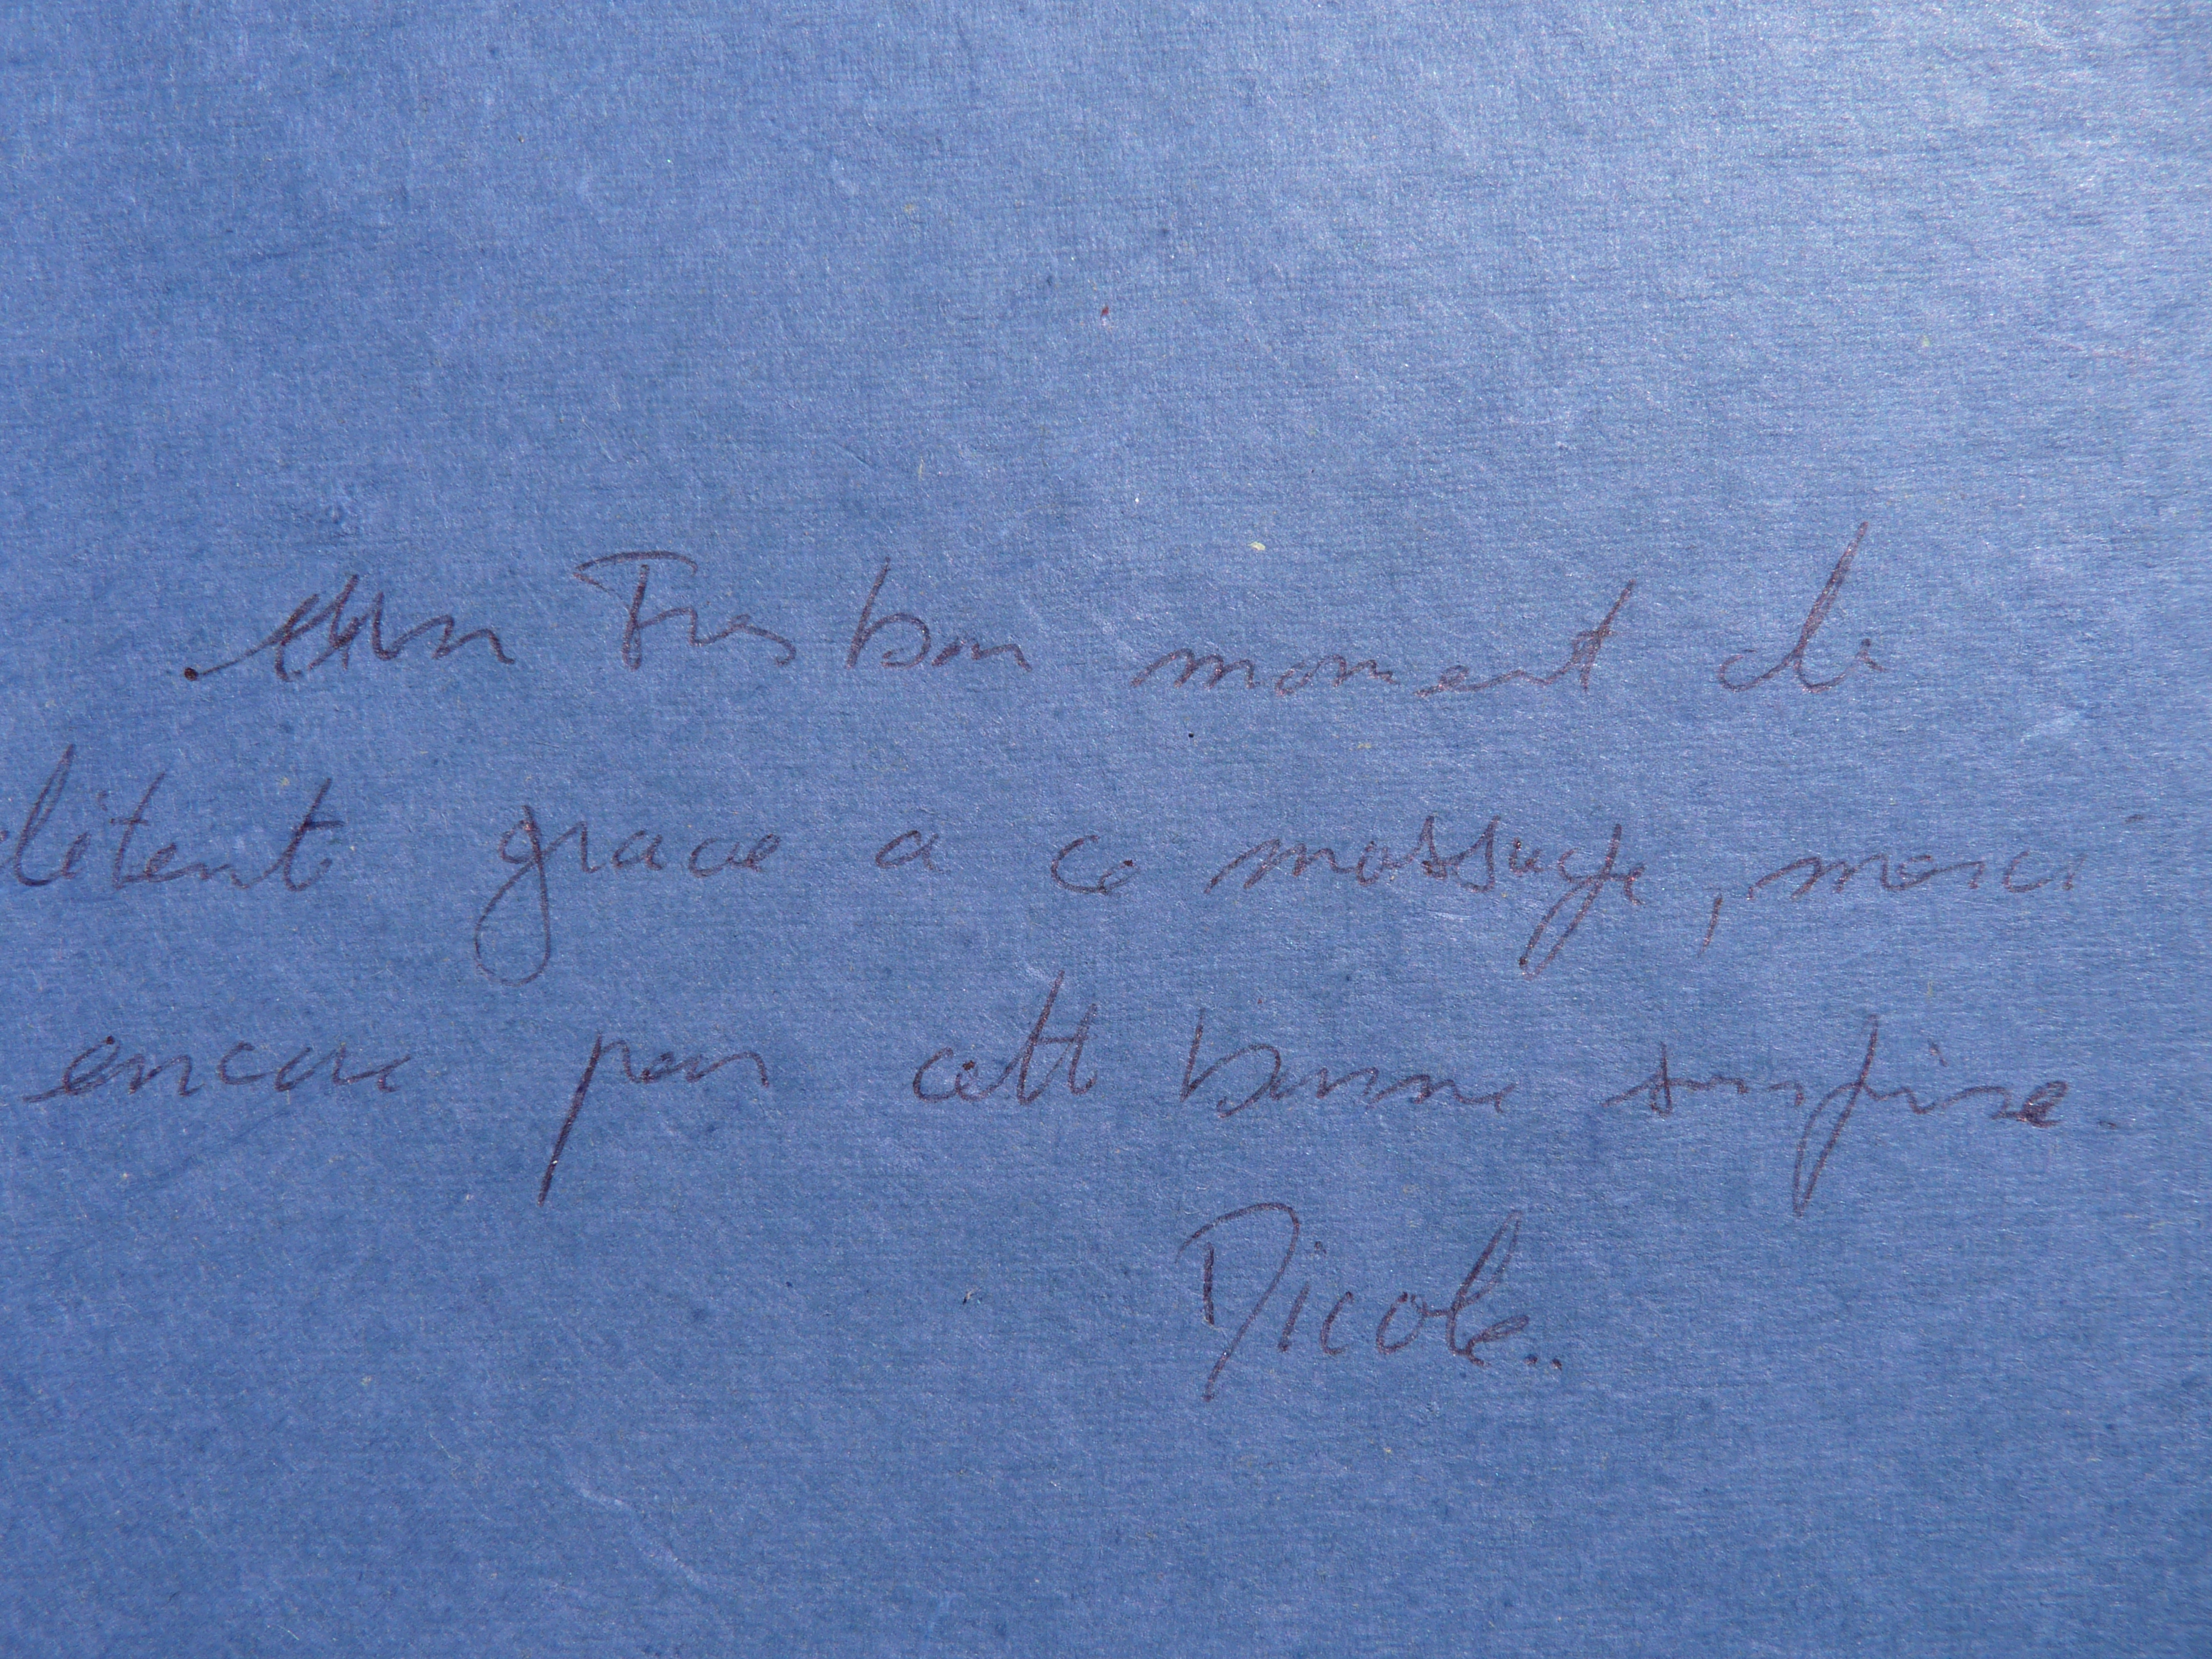 Un Tres bon moment de
détente grace a ce massage, merci
encore pour cette bonne surprise.
Nicole..